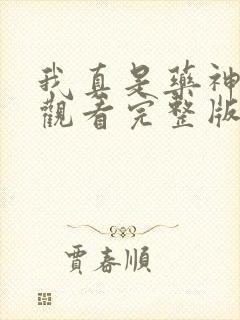 我真是藥神
觀看完整版
賈春順